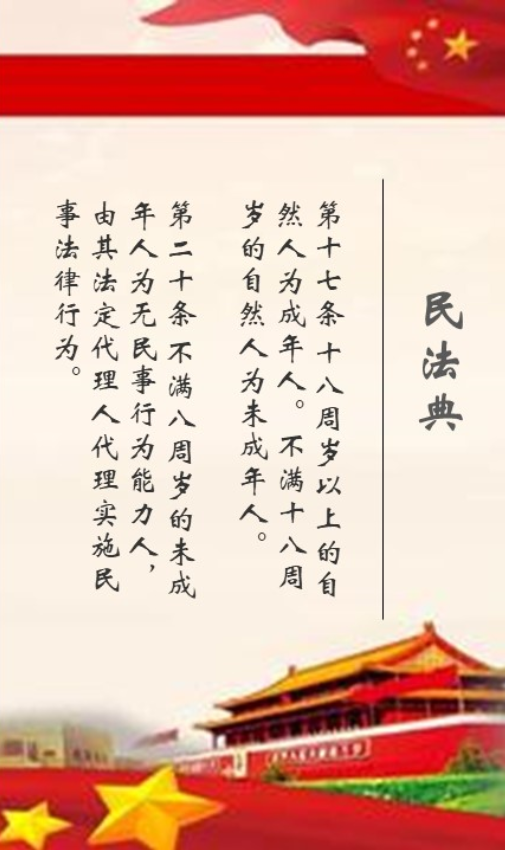 民法典
第十七条 十八周岁以上的自
然人为成年人。不满十八周
岁的自然人为未成年人。
第二十条 不满八周岁的未成
年人为无民事行为能力人，
由其法定代理人代理实施民
事法律行为。